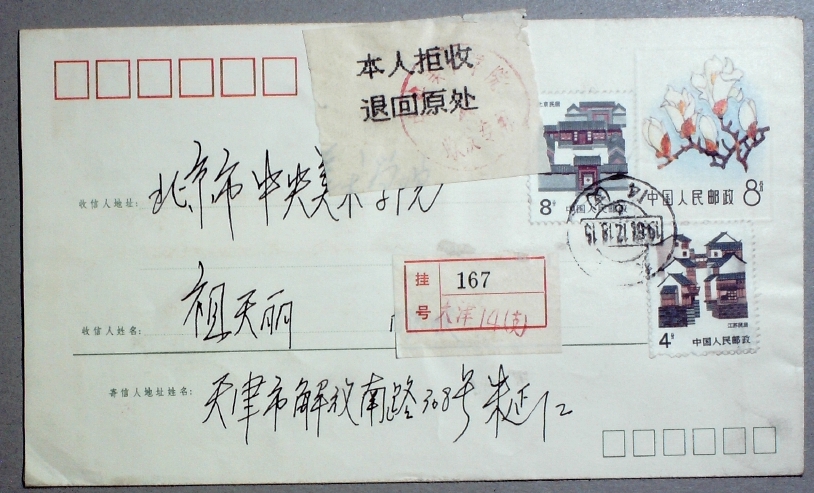 本人拒收
退回原处
北京民居
8分
中国人民邮政
中国人民邮政 8分
收信人地址: 北京市中央美术学院
挂号 167
天津14(支)
江苏民居
4分 中国人民邮政
收信人姓名: 祖天丽
寄信人地址姓名: 天津市解放南路308号朱延仁